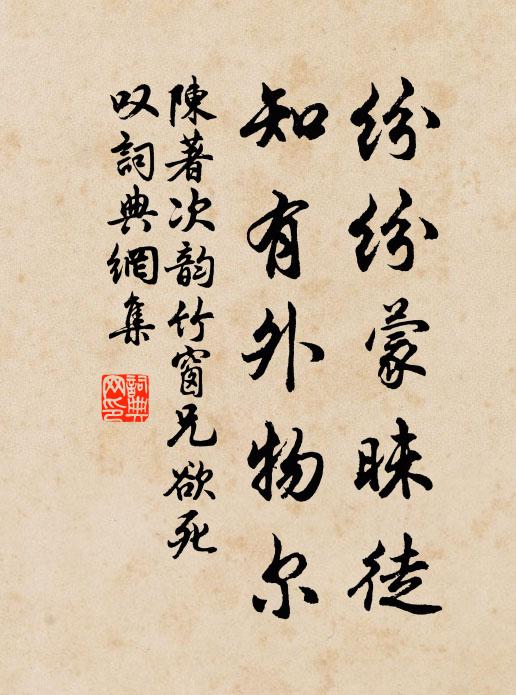 纷纷蒙昧徒
知有外物尔
陳著次韵竹窗兄欲死
叹詞典網集
詞典网印